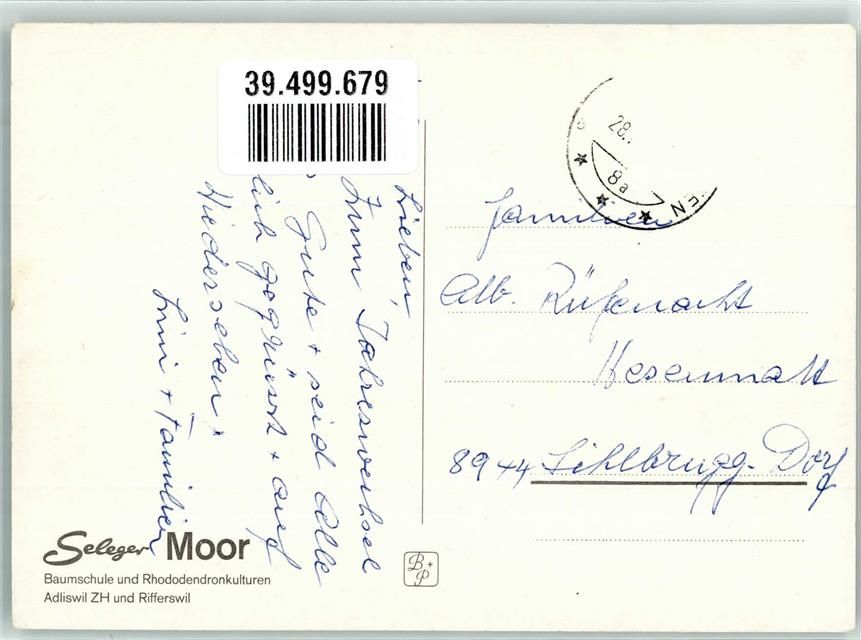 39.499.679
Lieben,
Zum Jahreswechsel
Gute + seid Alle
lich gegrüsst + auf
Wiedersehen.
+ Familien
Seleger Moor
Baumschule und Rhododendronkulturen
Adliswil ZH und Rifferswil
B + P
28.
8a
EN
Familien
Alb. Rüfenacht
8944 Sihlbrugg-Dorf